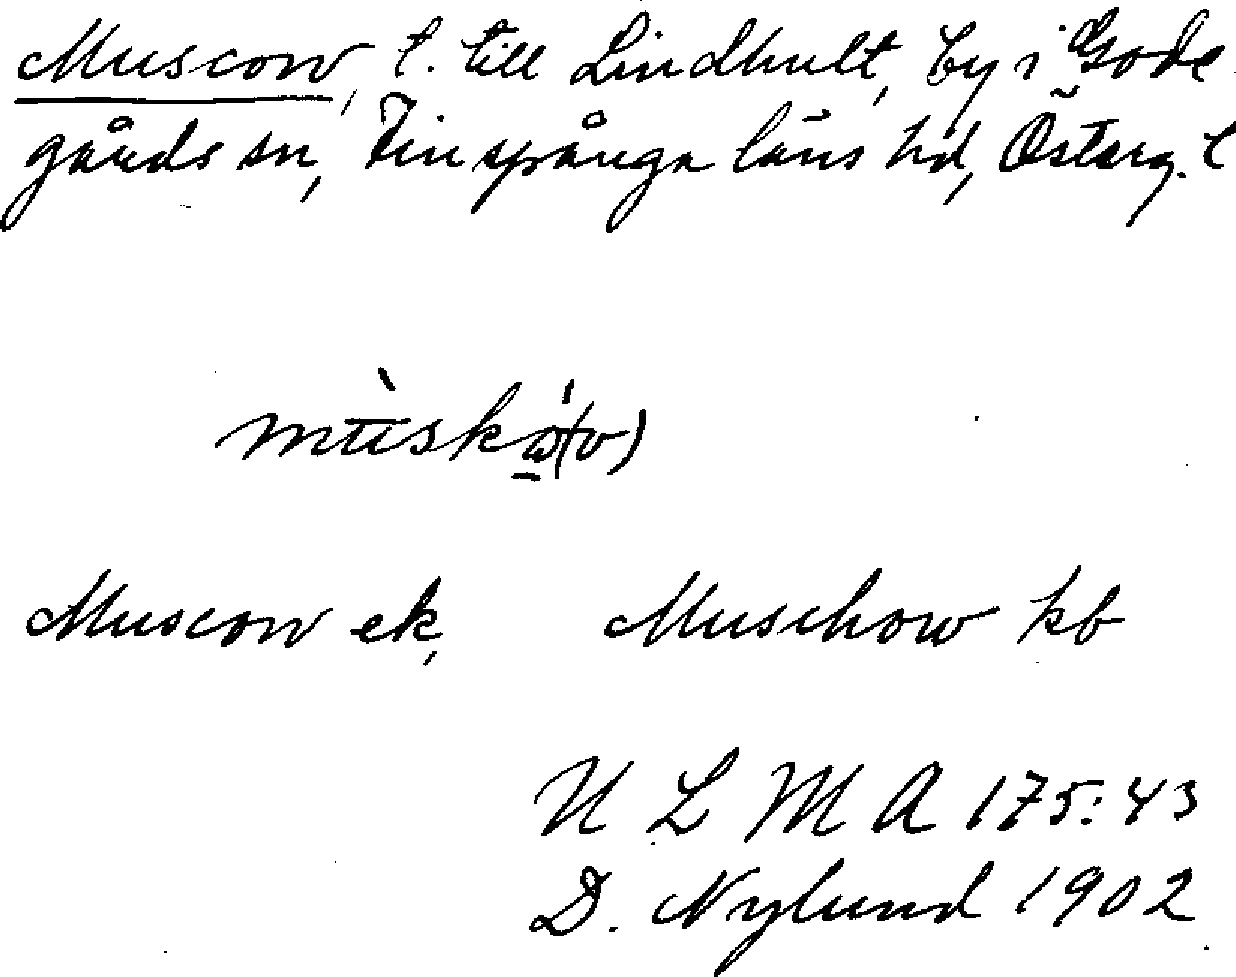 Muscow, t. till Lindhult, by i Gode
gårds sn, Finspånga läns hd, Österg. l
mùskǻ(v)
Muscow ek, Muschow kb
U L M A 175:43
D. Nylund 1902